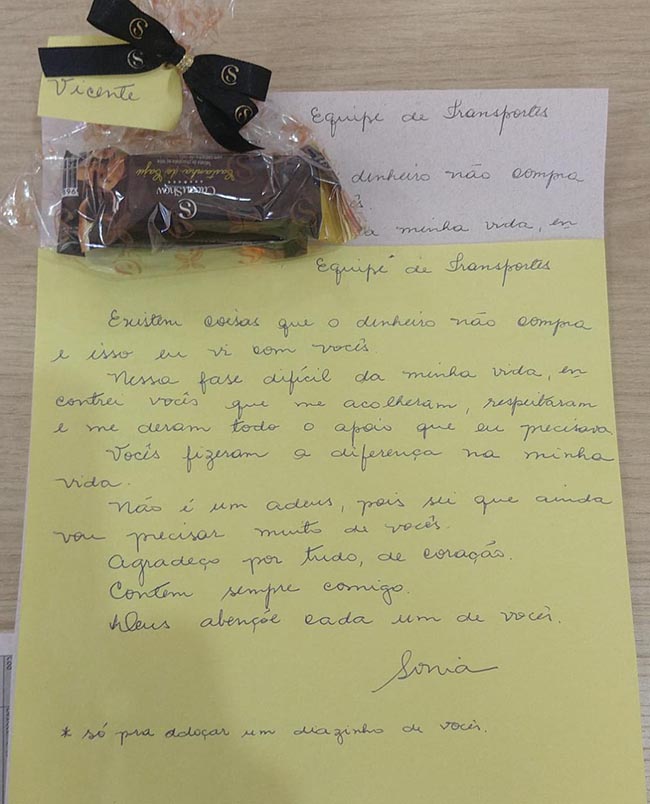 Vicente
Equipe de Transportes
dinheiro não compra
minha vida, en
CACAU SHOW
Castanha de Caju
Equipe de Transportes
Existem coisas que o dinheiro não compra
e isso eu vi com vocês.
Nessa fase difícil da minha vida, en
contrei vocês que me acolheram, respeitaram
e me deram todo o apoio que eu precisava
Vocês fizeram a diferença na minha
vida.
Não é um adeus, pois sei que ainda
vou precisar muito de vocês.
Agradeço por tudo, de coração.
Contem sempre comigo.
Deus abençõe cada um de vocês.
Sonia
* só pra adoçar um diazinho de vocês.